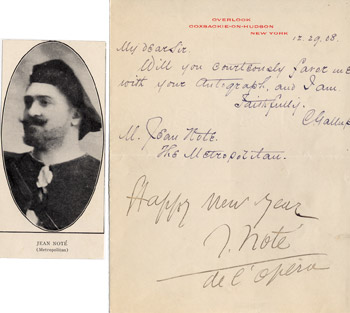 JEAN NOTÉ
(Metropolitan)
OVERLOOK
COXSACKIE-ON-HUDSON
NEW YORK
12.29.08.
My dear Sir.
Will you courteously favor me
with your Autograph, and I am
Faithfully.
C Gallup
M. Jean Note.
The Metropolitan.
Happy new year
J. Noté
de l'opéra